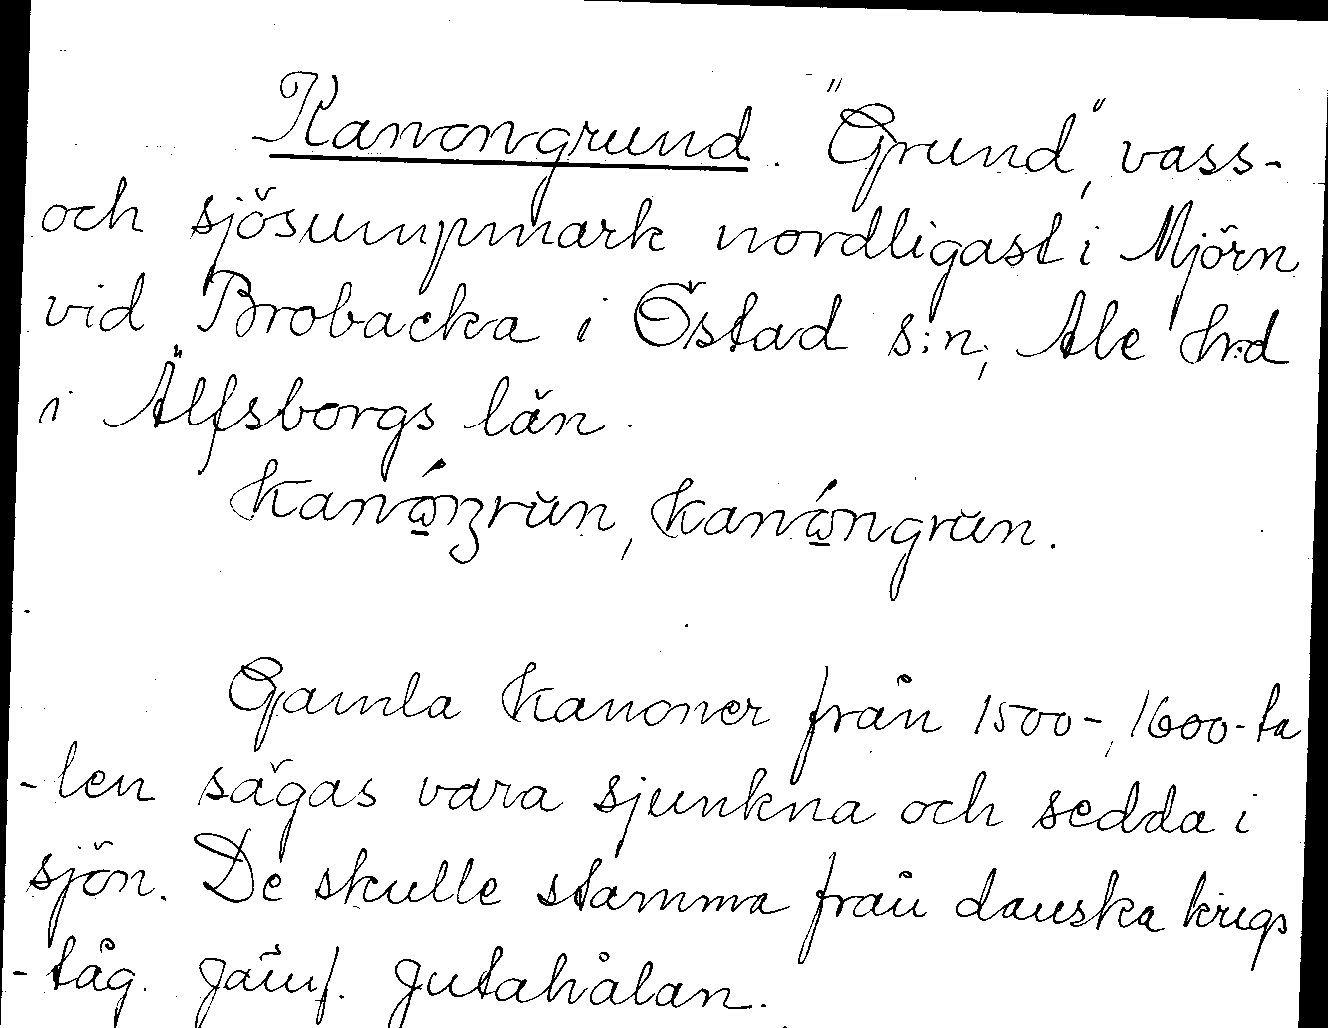 Kanongrund. "Grund", vass-
och sjösumpmark nordligast i Mjörn
vid Brobacka i Östad s:n, Ale hrd
i Älfsborgs län.
Kanåŋrun, Kanångrun.
Gamla kanoner från 1500-, 1600-ta
-len sägas vara sjunkna och sedda i
sjön. De skulle stamma från danska krigs
-tåg. Jämf. Jutahålan.